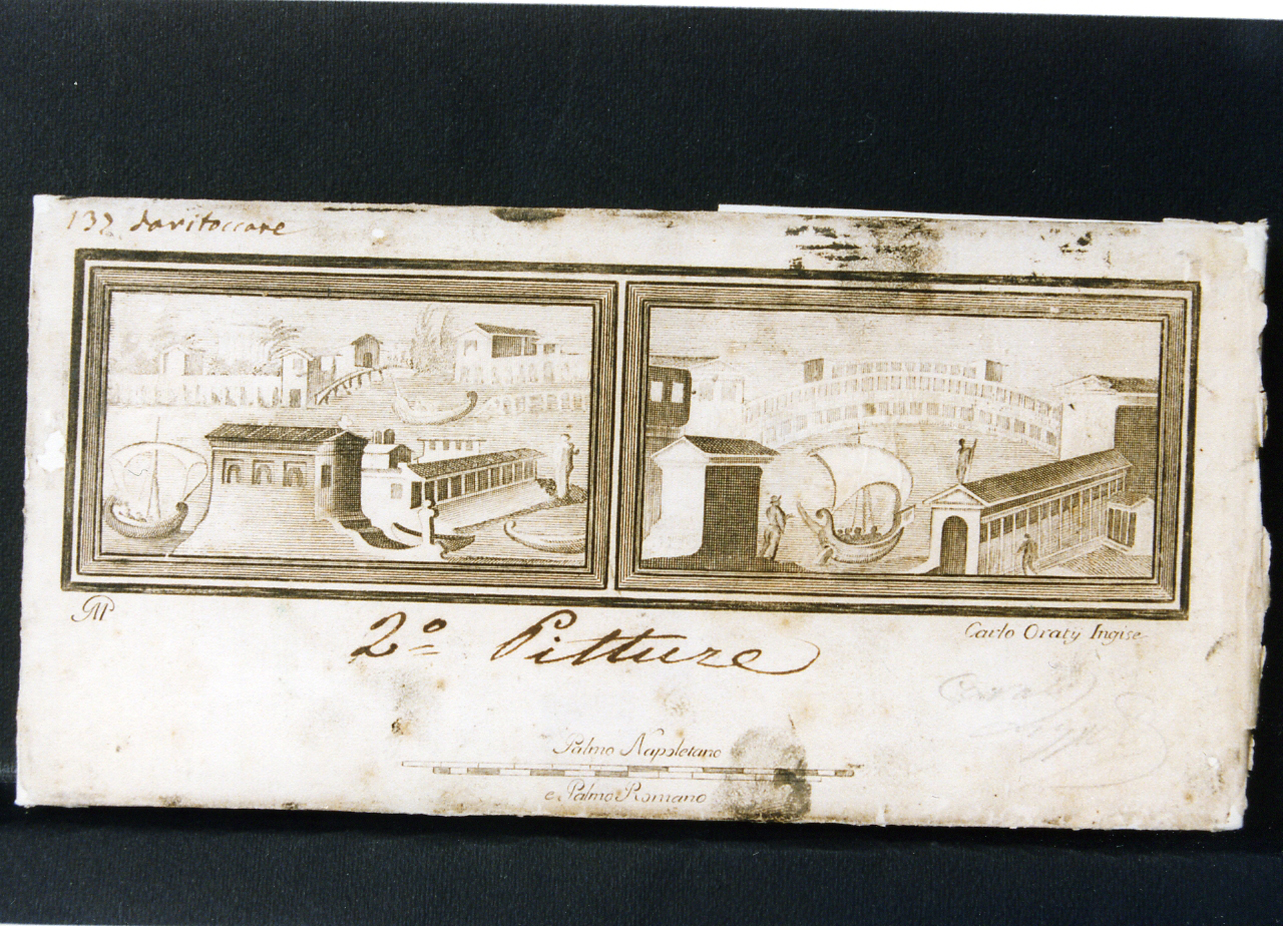 137 da ritoccare
2º Pitture
Carlo Oraty Ingise
Palmo Napoletano
e Palmo Romano